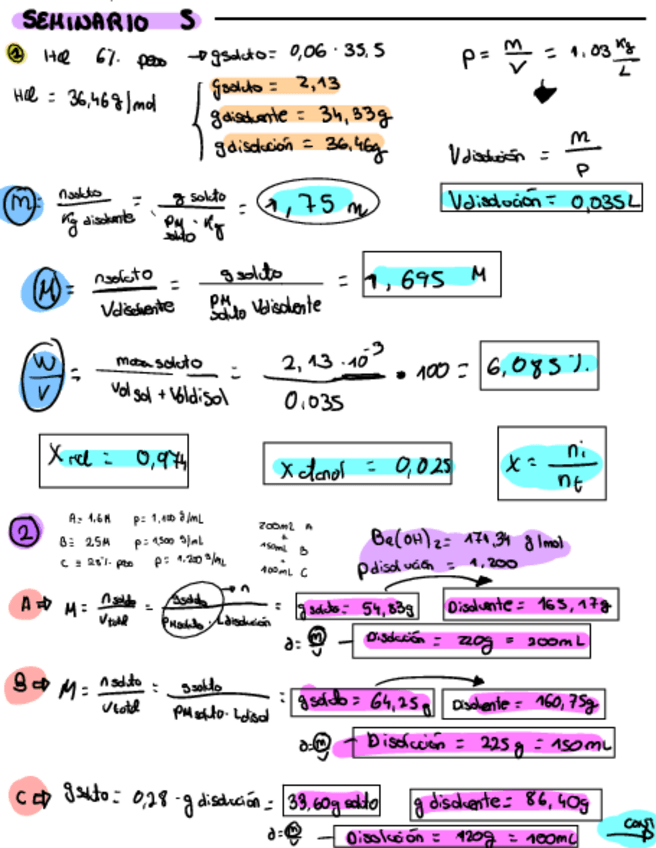 SEMINARIO 5
1 HCl 6% peso → g soluto = 0,06 · 35,5
ρ = m/V = 1,03 Kg/L
HCl = 36,46 g/mol
g soluto = 2,13
g disolvente = 34,33g
g disolución = 36,46g
V disolución = m/ρ
V disolución = 0,035L
m = n soluto / Kg disolvente = g soluto / PM soluto · Kg = 1,75 m
M = n soluto / V disolvente = g soluto / PM soluto V disolvente = 1,695 M
W/V = masa soluto / Vol sol + Vol disol = 2,13 · 10⁻³ / 0.035 · 100 = 6,085%
X HCl = 0,974
X etanol = 0,025
X = ni / nt
2
A = 1,6M ρ = 1,100 g/mL
B = 2,5M ρ = 1,500 g/mL
C = 28% peso ρ = 1,200 g/mL
200mL A
+
150mL B
+
100mL C
Ba(OH)2 = 171,34 g/mol
ρ disolución = 1,200
A ⇒ M = n soluto / V total = g soluto / PM soluto · L disolución → n = g soluto = 54,83g Disolvente = 165,17g
d = m/v – Disolución = 220g = 200mL
B ⇒ M = n soluto / V total = g soluto / PM soluto · L disol = g soluto = 64,25g Disolvente = 160,75g
d = m/v – Disolución = 225g = 150mL
C ⇒ g soluto = 0,28 · g disolución = 33,60g soluto g disolvente = 86,40g
d = m/v – Disolución = 120g = 100mL